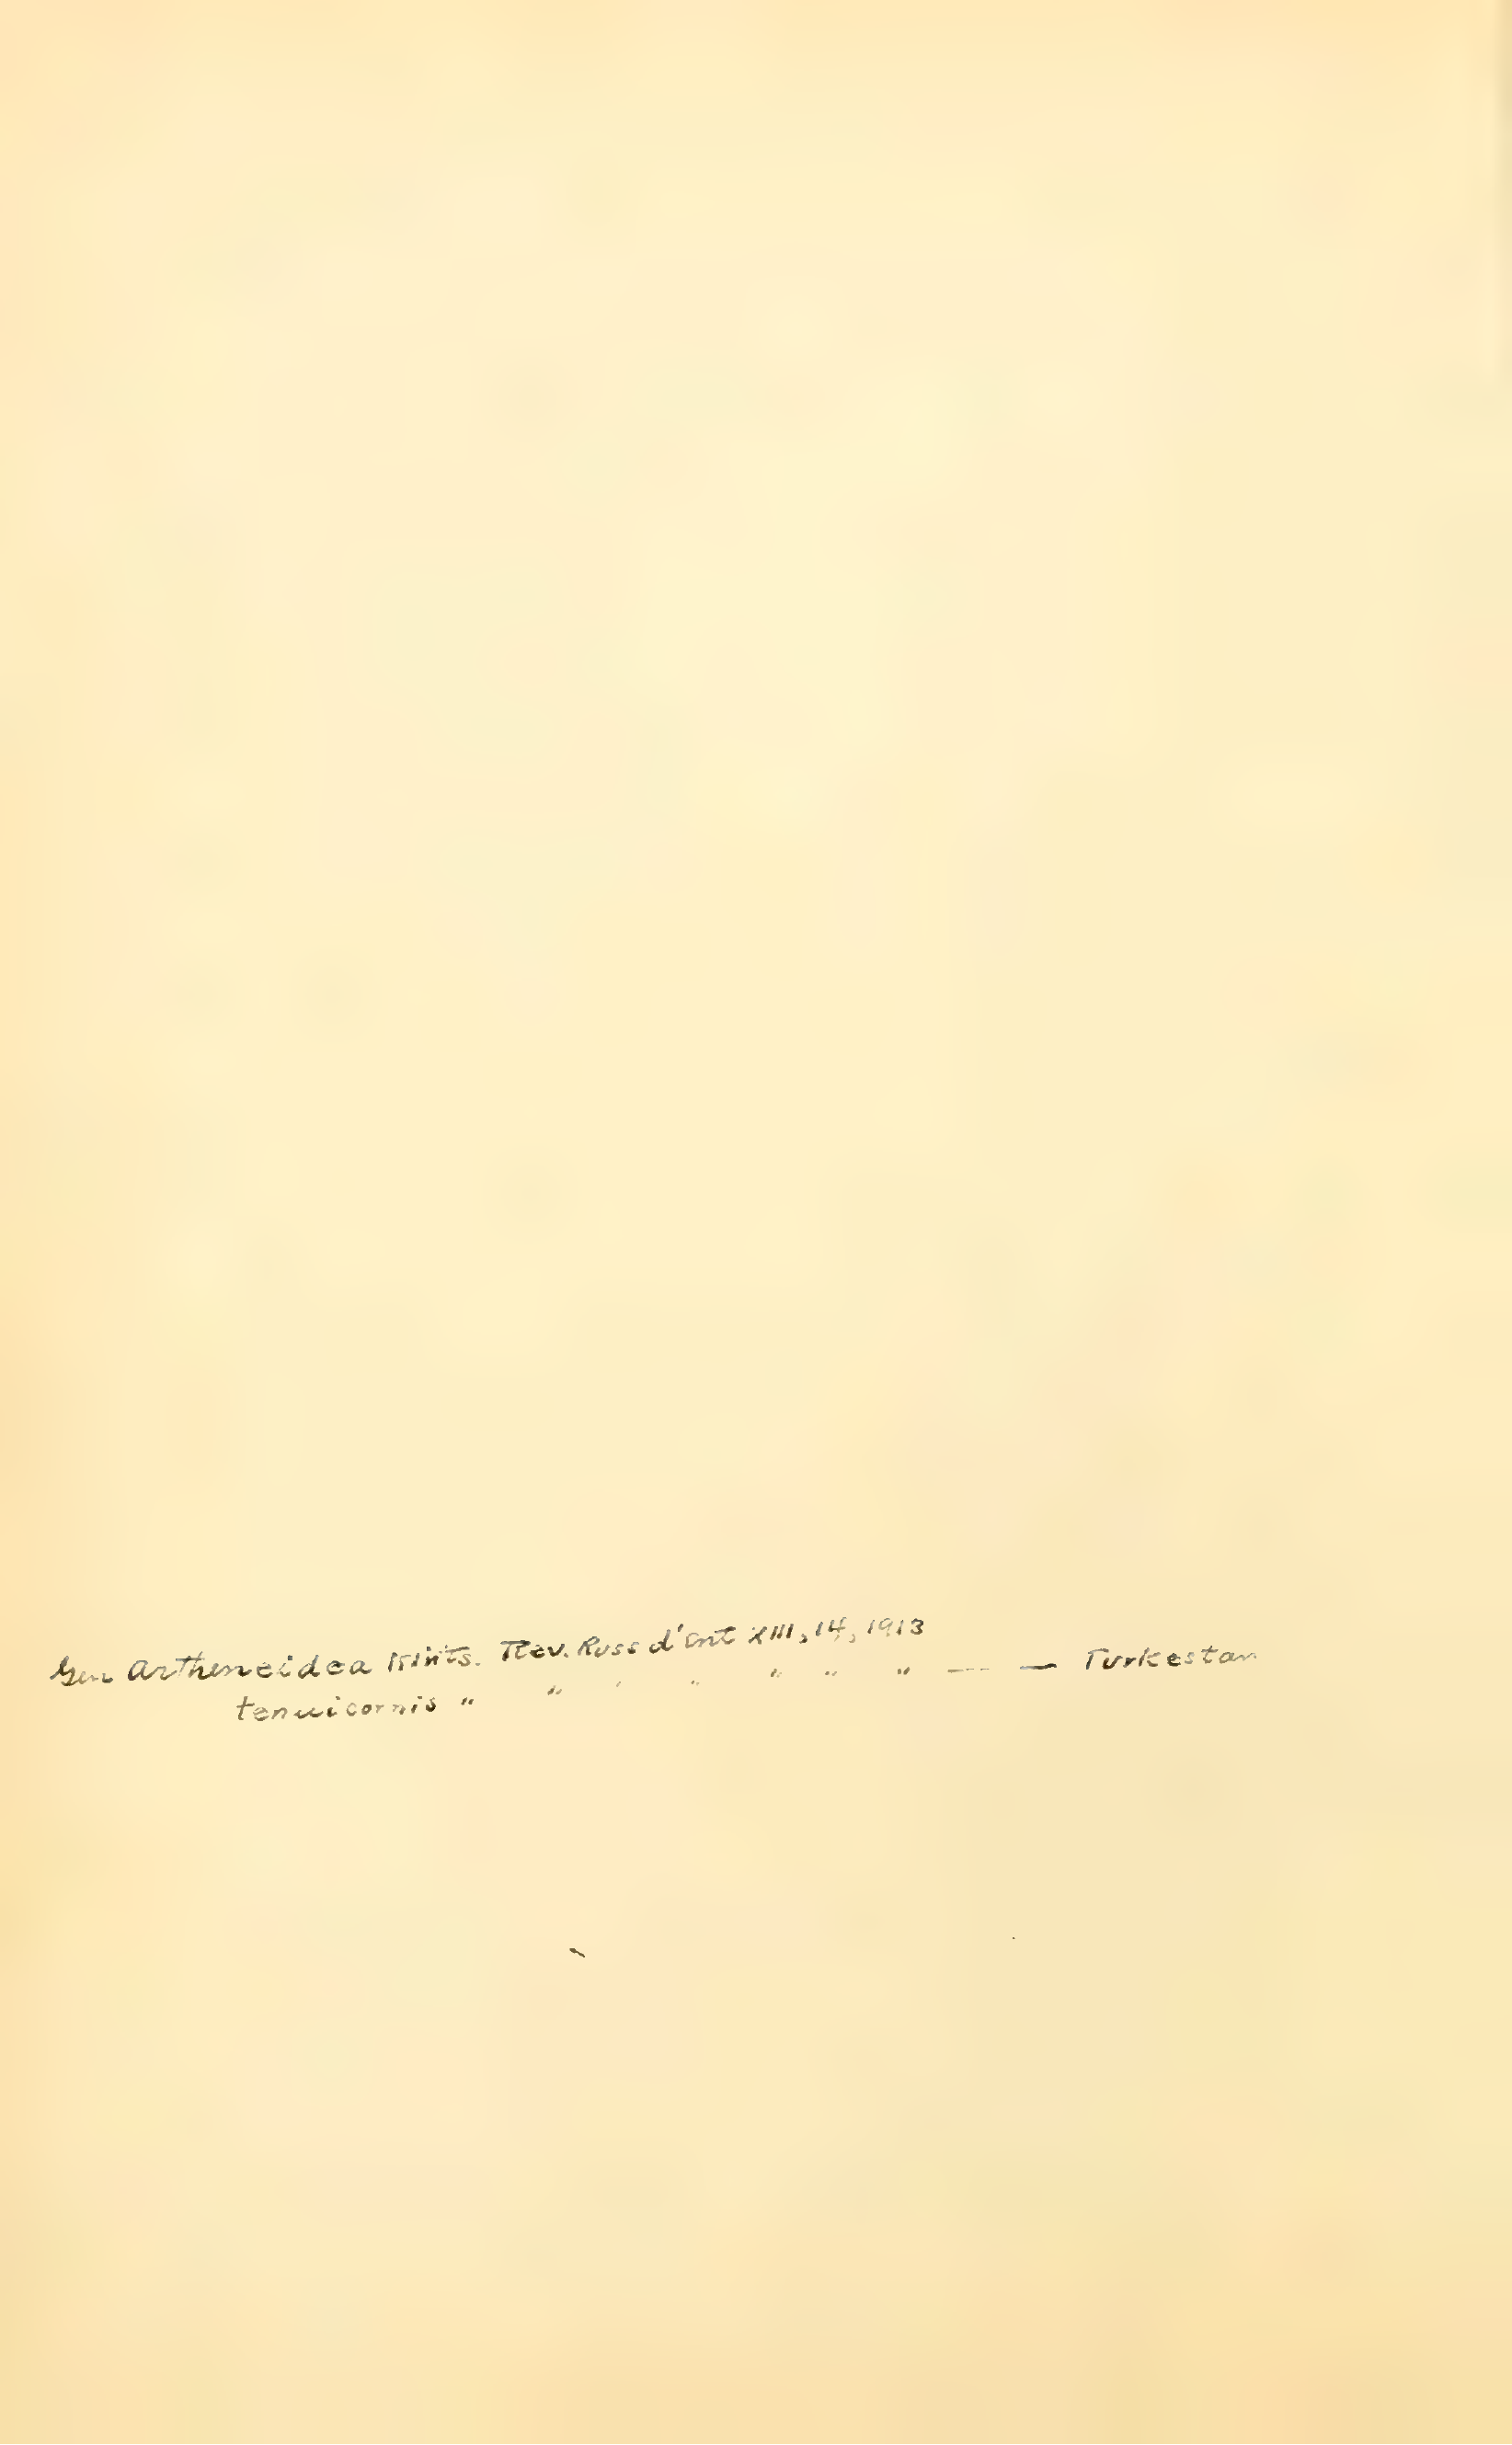 Gen Artheneidea Kirits. Rev. Russ d'Ent XIII, 14, 1913
tenuicornis " " " " " " " — — Turkestan